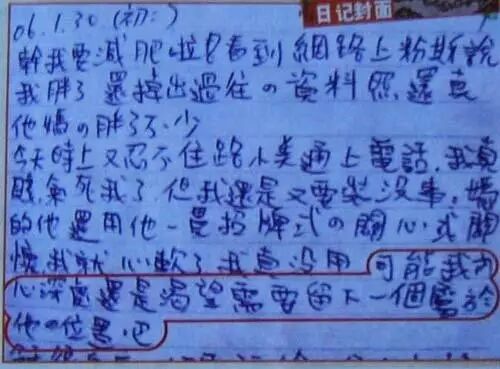 日记封面
06.1.30 (初二)
幹我要減肥啦只看到網路上粉斯說
我胖了還出過往の資料照還真
他媽の胖了不少
今天上又忍不住小美通上電話.我真
賤氣死我了但我還是又要裝沒事.媽
的他還用他一貫招牌式の關心式關
懷我就心軟了我真沒用可能我內
心深處還是渴望需要留下一個屬於
他の位置吧